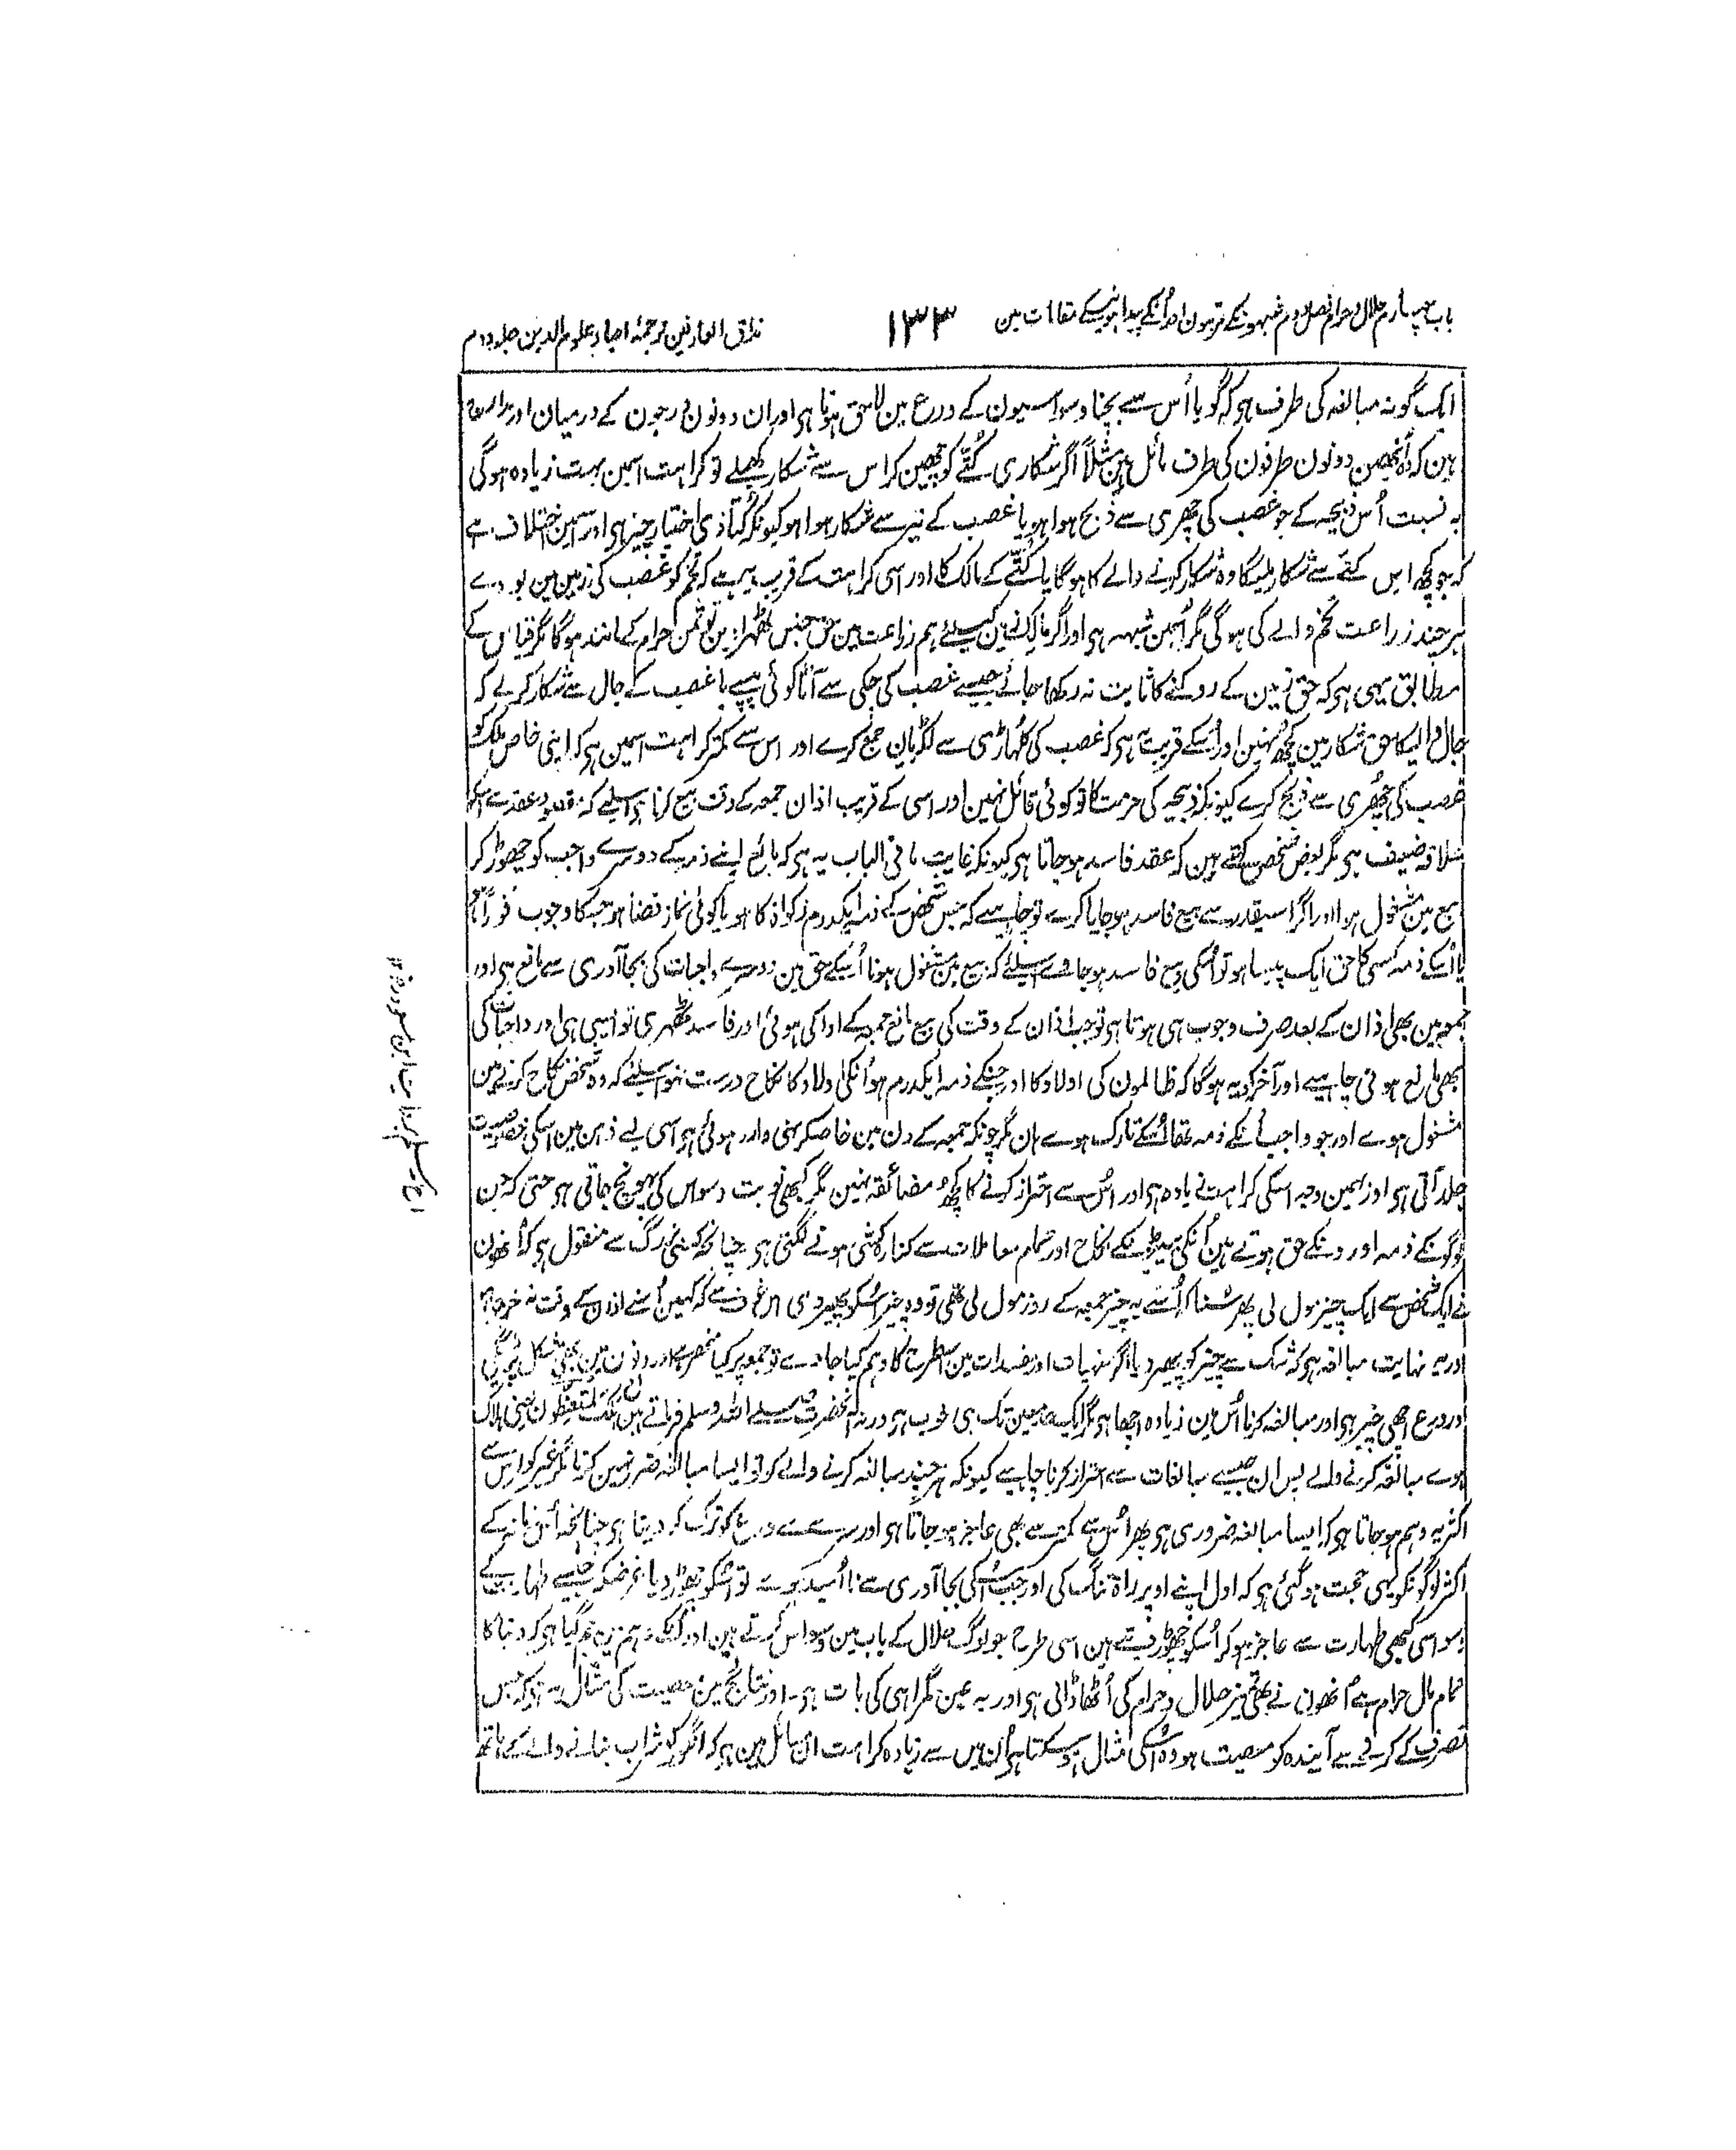 باب چہارم حلال و حرام فصل دوم شبہونکے مرتبون اور اُنکے پیدا ہونیکے مقامات مین
۱۳۳
مذاق العارفین ترجمۂ احیاء علوم الدین جلد دوم
ایک گونہ مبالغہ کی طرف ہو کہ گویا اُس سے بچنا وسواسیون کے ورع مین لاحق ہوتا ہی اور ان دونون درجون کے درمیان اور مدارج
ہین کہ وہ اُنھین دونون طرفون کی طرف مائل ہین مثلاً اگر شکاری کتّے کو چھین کر اس سے شکار کھیلے تو کراہت اسمین بہت زیادہ ہوگی
بہ نسبت اُس ذبیحہ کے جو غصب کی چھری سے ذبح ہوا ہو یا غصب کے تیر سے شکار ہوا ہو کیونکہ کتا ذی اختیار چیز ہی اور اسمین اختلاف ہے
کہ جو کچھ اس کتے سے شکار ملیگا وہ شکار کرنے والے کا ہوگا یا کتّے کے مالک کا اور اسی کراہت کے قریب یہ ہے کہ تخم کو غصب کی زمین مین بو دے
ہر چند زراعت تخم والے کی ہوگی مگر اُسمین شبہہ ہی اور اگر مالک زمین کیلیے ہم زراعت مین حق حبس ٹھہرا دین تو ثمن حرام کے مانند ہوگا مگر قیاس کے
مطابق یہی ہی کہ حق زمین کے روکنے کا ثابت نہ رکھا جائے جیسے غصب کی چکی سے آٹا کوئی پیسے یا غصب کے جال سے شکار کرے کہ
جال والیکا حق شکار مین کچھ نہین اور اُسکے قریب یہ ہی کہ غصب کی کلہاڑی سے لکڑیان جمع کرے اور اس سے کمتر کراہت اسمین ہی کہ اپنی خاص ملک کو
غصب کی چھُری سے ذبح کرے کیونکہ ذبیحہ کی حرمت کا تو کوئی قائل نہین اور اسی کے قریب اذان جمعہ کے وقت بیع کرنا ہی اسلیے کہ مقصود عقد سے اسکو
علاقہ ضعیف ہی مگر بعض شخص کہتے ہین کہ عقد فاسد ہو جاتا ہی کیونکہ غایت ما فی الباب یہ ہی کہ بائع اپنے ذمہ کے دوسرے واجب کو چھوڑ کر
بیع مین مشغول ہوا اور اگر اسیقدر سے بیع فاسد ہو جایا کرے تو چاہیے کہ جس شخص کے ذمہ ایکدرم زکوٰۃ کا ہو یا کوئی نماز قضا ہو جسکا وجوب فوراً ہو
یا اُسکے ذمہ کسی کا حق ایک پیسا ہو تو اُسکی بیع فاسد ہو جاوے اسلیے کہ بیع مین مشغول ہونا اُسکے حق مین دوسرے واجبات کی بجا آوری سے مانع ہی اور
جمعہ مین بھی اذان کے بعد صرف وجوب ہی ہوتا ہی تو جب اذان کے وقت کی بیع مانع جمعہ کے ادا کی ہوئی اور فاسد ٹھہری تو ایسی ہی اور واجبات کی
بھی مانع ہونی چاہیے اور آخر کو یہ ہوگا کہ ظالمون کی اولاد کا اور جنکے ذمہ ایکدرم ہو اُنکی اولاد کا نکاح درست نہو اسلیے کہ وہ شخص نکاح کرنے مین
مشغول ہوے اور جو واجب اُنکے ذمہ تھا اُسکے تارک ہوے ہان مگر چونکہ جمعہ کے دن مین خاصکر نہی وارد ہوئی ہی اسی لیے ذہن مین اسکی خصوصیت
جلد آتی ہی اور بہمین وجہ اسکی کراہت زیادہ ہی اور اُس سے احتراز کرنے کا کچھ مضائقہ نہین مگر کبھی نوبت وسواس کی پہونچ جاتی ہی حتی کہ جن
لوگونکے ذمہ اورونکے حق ہوتے ہین اُنکی بیٹیونکے نکاح اور تمام معاملات سے کنارہ کشی ہونے لگتی ہی چنانچہ کسی بزرگ سے منقول ہی کہ اُنھون
نے ایک شخص سے ایک چیز مول لی پھر سُنا کہ اُسنے یہ چیز جمعہ کے روز مول لی تھی تو وہ چیز اُسکو پھیر دی اس خوف سے کہ کہین اُسنے اذان کے وقت نہ خریدا ہو
اور یہ نہایت مبالغہ ہی کہ شک سے چیز کو پھیر دیا اگر منہیات اور مفسدات مین اسطرح کا وہم کیا جاوے تو جمعہ پر کیا منحصر ہے اور دنون مین بھی مشکل پڑیگی
اور ورع اچھی چیز ہی اور مبالغہ کرنا اُس مین زیادہ اچھا ہی مگر ایک حد معین تک ہی خوب ہی ورنہ آنحضرت صلے اللہ وسلم فرماتے ہین ہلک المتنطعون یعنی ہلاک
ہوے مبالغہ کرنے والے پس ان جیسے مبالغات سے احتراز کرنا چاہیے کیونکہ ہر چند مبالغہ کرنے والے کو تو ایسا مبالغہ ضرر نہین کرتا مگر غیر کو اس سے
اکثر یہ وہم ہو جاتا ہی کہ ایسا مبالغہ ضروری ہی پھر اُس سے کمتر سے بھی عاجز ہو جاتا ہی اور سرے سے ورع کو ترک کر دیتا ہی چنانچہ اس زمانہ کے
اکثر لوگونکو یہی حجت ہوگئی ہی کہ اول اپنے اوپر راہ تنگ کی اور جب اُسکی بجا آوری سے نا اُمید ہوے تو اُسکو چھوڑ دیا غرضکہ جیسے طہارت کے
وسواسی کبھی طہارت سے عاجز ہو کر اُسکو چھوڑ دیتے ہین اسی طرح جو لوگ حلال کے باب مین وسواس کرتے ہین اور اُنکے وہم مین جم گیا ہی کہ دنیا کا
تمام مال حرام ہے اُنھون نے بھی تمیز حلال و حرام کی اُٹھا ڈالی ہی اور یہ عین گمراہی کی بات ہی۔ اور نتائج مین معصیت کی مثال یہ ہی کہ جس
تصرف کے کرنے سے آیندہ کو معصیت ہو وہ اُسکی مثال ہو سکتا ہی اُن مین سے زیادہ کراہت ان مسائل مین ہی کہ انگور کو شراب بنانے والے کے ہاتھ
مسلم بروایت ابن مسعود رض ۱۲